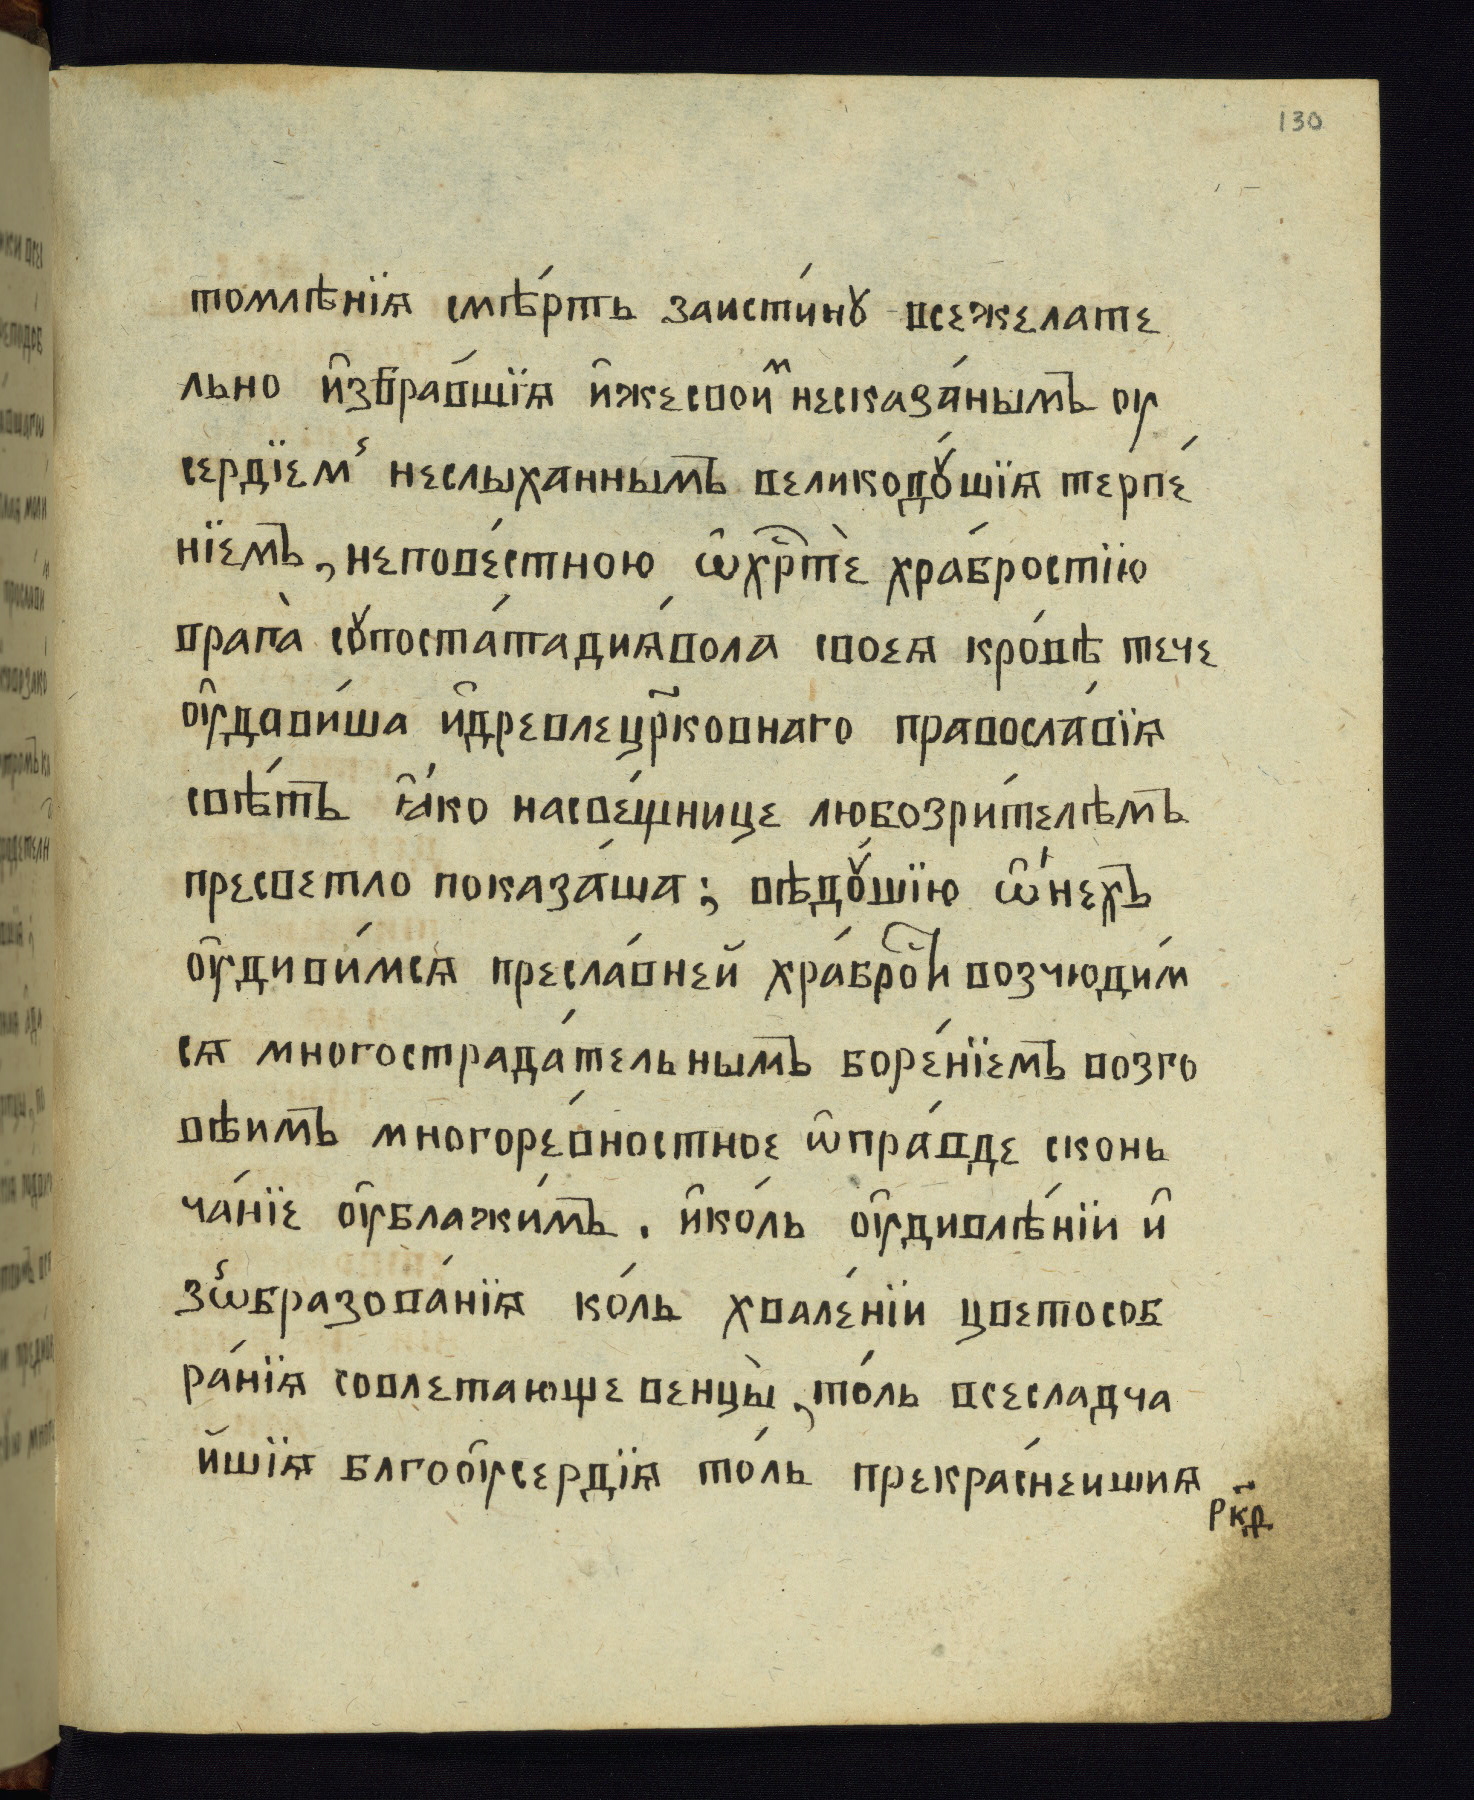 130
томлѣнїѧ смѣ́рть заисти́нꙋ всежелате
льно и҆збра́вшїѧ и҆жесвоиⷨ несказа́нымъ оу
сердїемъ неслыханнымъ великодꙋ́шїѧ терпе́
нїемъ, неповѣ́стною ѡ҆хрⷭ҇тѐ хра́бростїю
врага̀ сꙋпоста́та дия́вола своеѧ кро́вѣ тече
оу҆дави́ша и҆древлецр҃ковнаго правосла́вїѧ
свѣ́тъ ꙗ҆́ко насвѣ́щнице любозри́телѣмъ
пресветло показа́ша; вѣдꙋ́шїю ѡ҆́нехъ
оу҆диви́мсѧ пресла́вней хра́броⷭ҇и возчюди́м
сѧ многострада́тельнымъ боре́нїемъ возго
вѣимъ многоре́вностное ѡ҆пра́вде сконь
ча́нїе оу҆блажи́мъ. и҆ко́ль оу҆дивлѣ́нїи и҆
зѡбразова́нїѧ ко́ль хвале́нїи цветособ
ра́нїѧ соплетающе венцы̀, то́ль всесладча
йшїѧ благоо҆усердїѧ то́ль прекра́снеишиѧ
рк҃д